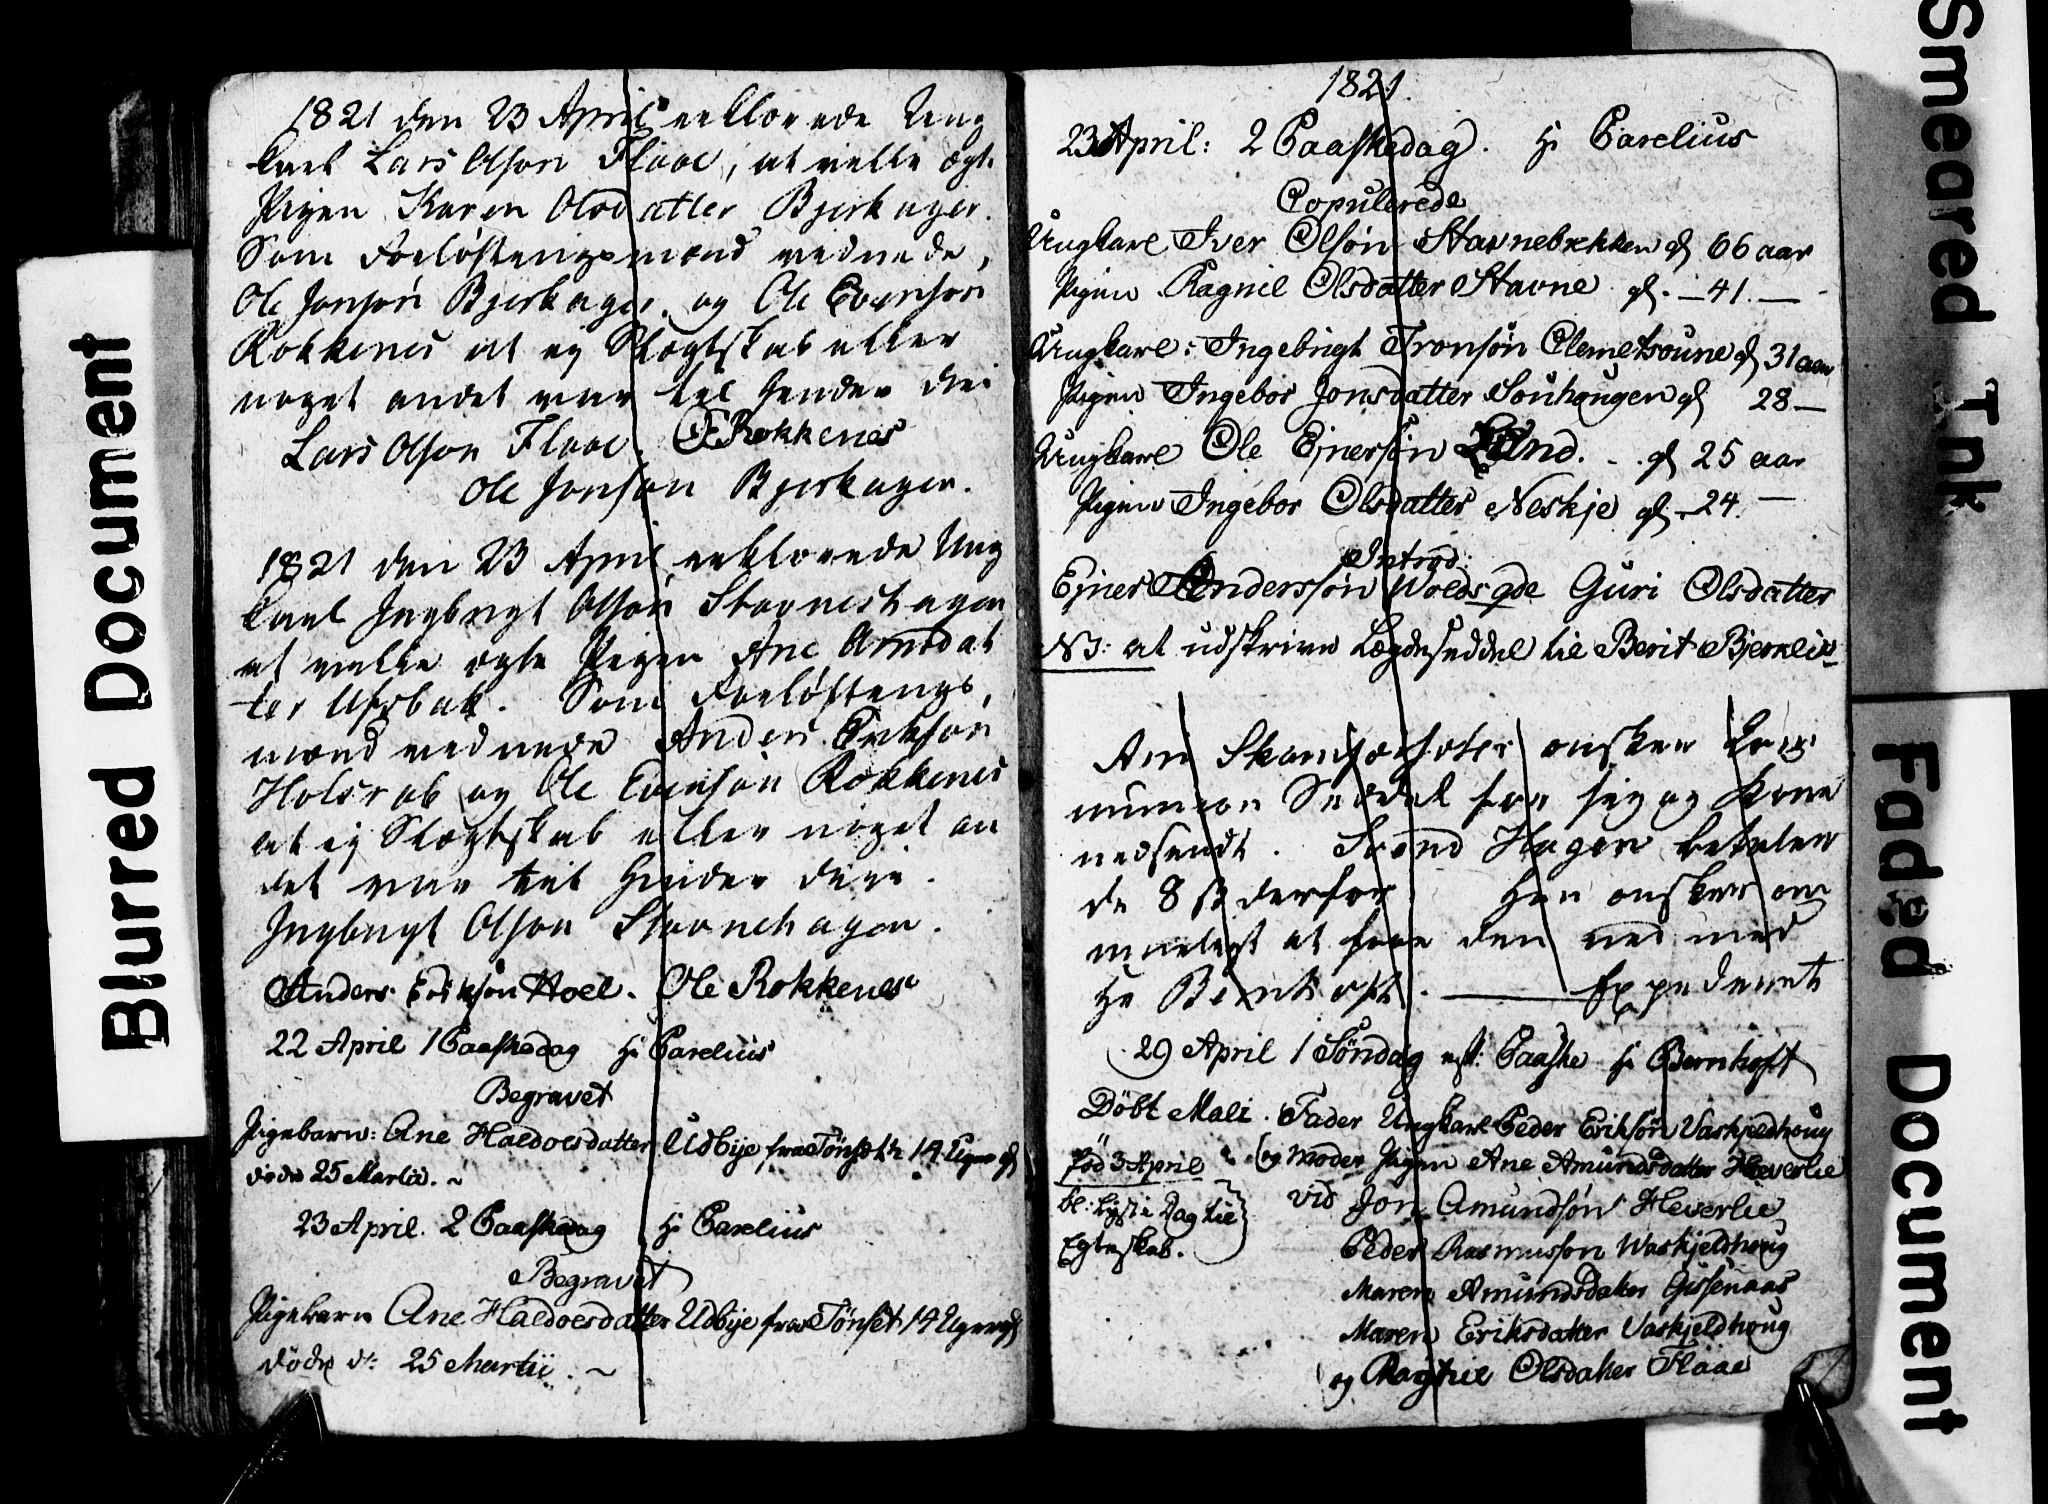 1821 den 23 April erklærede Ung
karl Lars Olsøn Flaae, at ville ægte
Pigen Karen Olsdatter Bjerkager.
Som Forløftningsmænd vidnede,
Ole Jonsøn Bjerkager, og Ole Evensøn
Rokkenes at ej Slægtskab eller
noget andet var til Hinder deri
Lars Olson Flaae. OE Rokkenes
Ole Jonsøn Bjerkager.
1821 den 23 April erklærede Ung
karl Ingbrigt Olsøn Stavneshagen
at ville ægte Pigen Ane Arnsdat
ter Ufsbak. Som Forløftnings,
mænd vidnede Anders Eriksøn
Holsrab og Ole Evensøn Rokkenes
at ej Slægtskab eller noget an
det var til Hinder deri.
Ingbrigt Olson Stavnehagen.
Anders Eriksøn Hoel. Ole Rokkenes
22 April 1 Paaskedag Hr Parelius
Begravet
Pigebarn: Ane Haldorsdatter Udbije fra Tønset 14 Uger gl
døde 25 Martii. ~
23 April. 2 Paaskedag Hr Parelius
Begravet
Pigebarn Ane Haldorsdatter Udbije fra Tønset 14 Uger gl
døde d: 25 Martii. ~
1821.
23 April: 2 Paaskedag. Hr Parelius
Copulerede
Ungkarl Iver Olsøn Stavnebrekken gl 66 aar
Pigen Ragnil Olsdatter Stavne gl. — 41. —
Ungkarl: Ingebrigt Tronsøn Clemetsoune gl 31 aar
Pigen Ingebor Jonsdatter Souhougen gl 28 —
Ungkarl Ole Ejnersøn Lund. - . gl 25 aar
Pigen Ingebor Olsdatter Neskje gl - 24. —
Introd:
Ejner Anderssøn Wolds qde Guri Olsdatter
NB: at udskrive Lægdeseddel til Berit Bjerklie
ønsker Com
munion Seddel for sig og Kone
nedsendt. Svend Hagen betalte
de 8 ß derfor Han ønsker om
mueligt at faae den ned med
Hr Bernhoft. — Expederet
29 April 1 Søndag eft: Paaske Hr Bernhoft
Døbt Mali. Fader Ungkarl Peder Eriksøn Vaskjeldhoug
fød 3 April og Moder Pigen Ane Amundsdatter Heverlie
bl: lyst i Dag til Vid Jon Amundsøn Heverlie
Egteskab. Peder Rasmussøn Waskjeldhoug
Maren Amundsdatter Gissenaas
Maren Eriksdatter Vaskjeldhoug
og Ragnil Olsdatter Flaae
Blurred Document
Smeared Ink
Faded Document